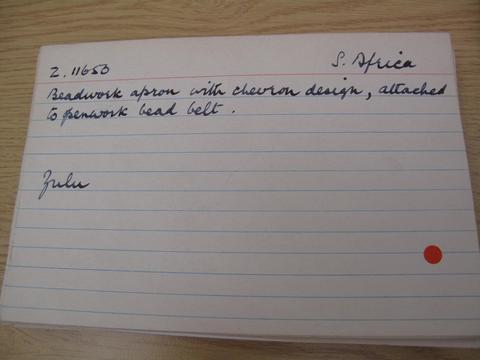 Z.11650 S. Africa
Beadwork apron with chevron design, attached
to penwork bead belt.
Zulu